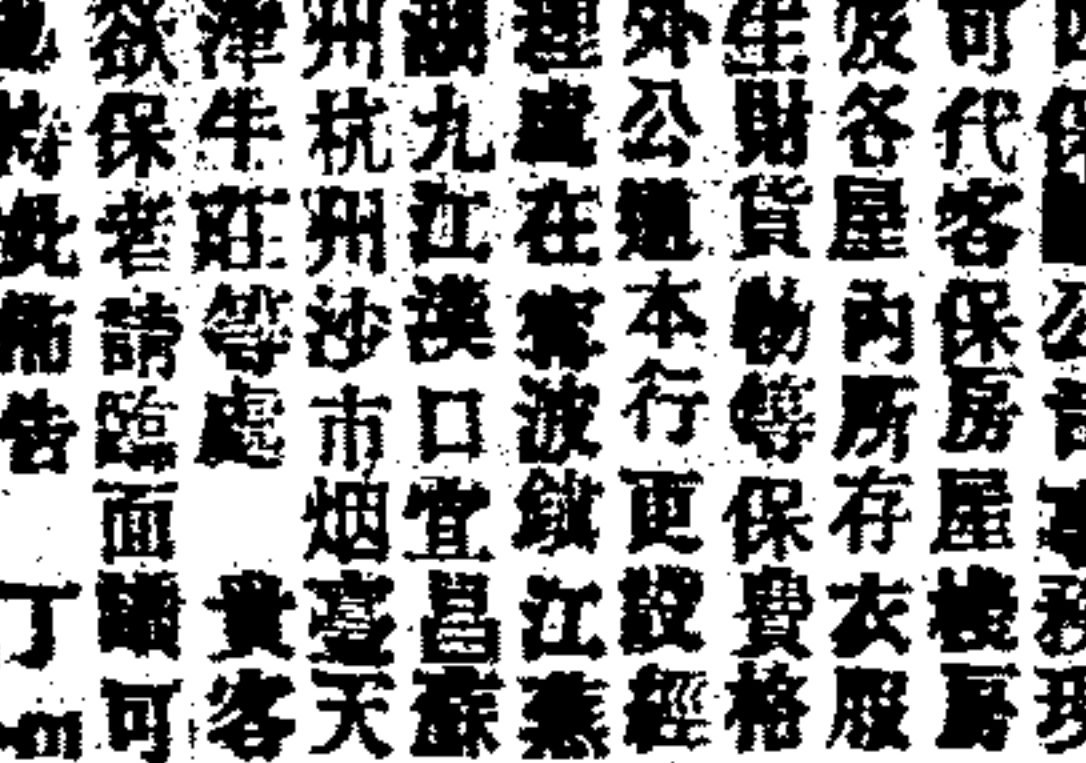 保 公 務現
可代客保房屋樓房
及各屋內所存衣服
生財貨物等保費格
外公道本行更設經
理處在寧波鎮江蕪
湖九江漢口宜昌蘇
州杭州沙市烟臺天
津牛莊等處 貴客
欲保者請臨面議可
也特此佈告 丁